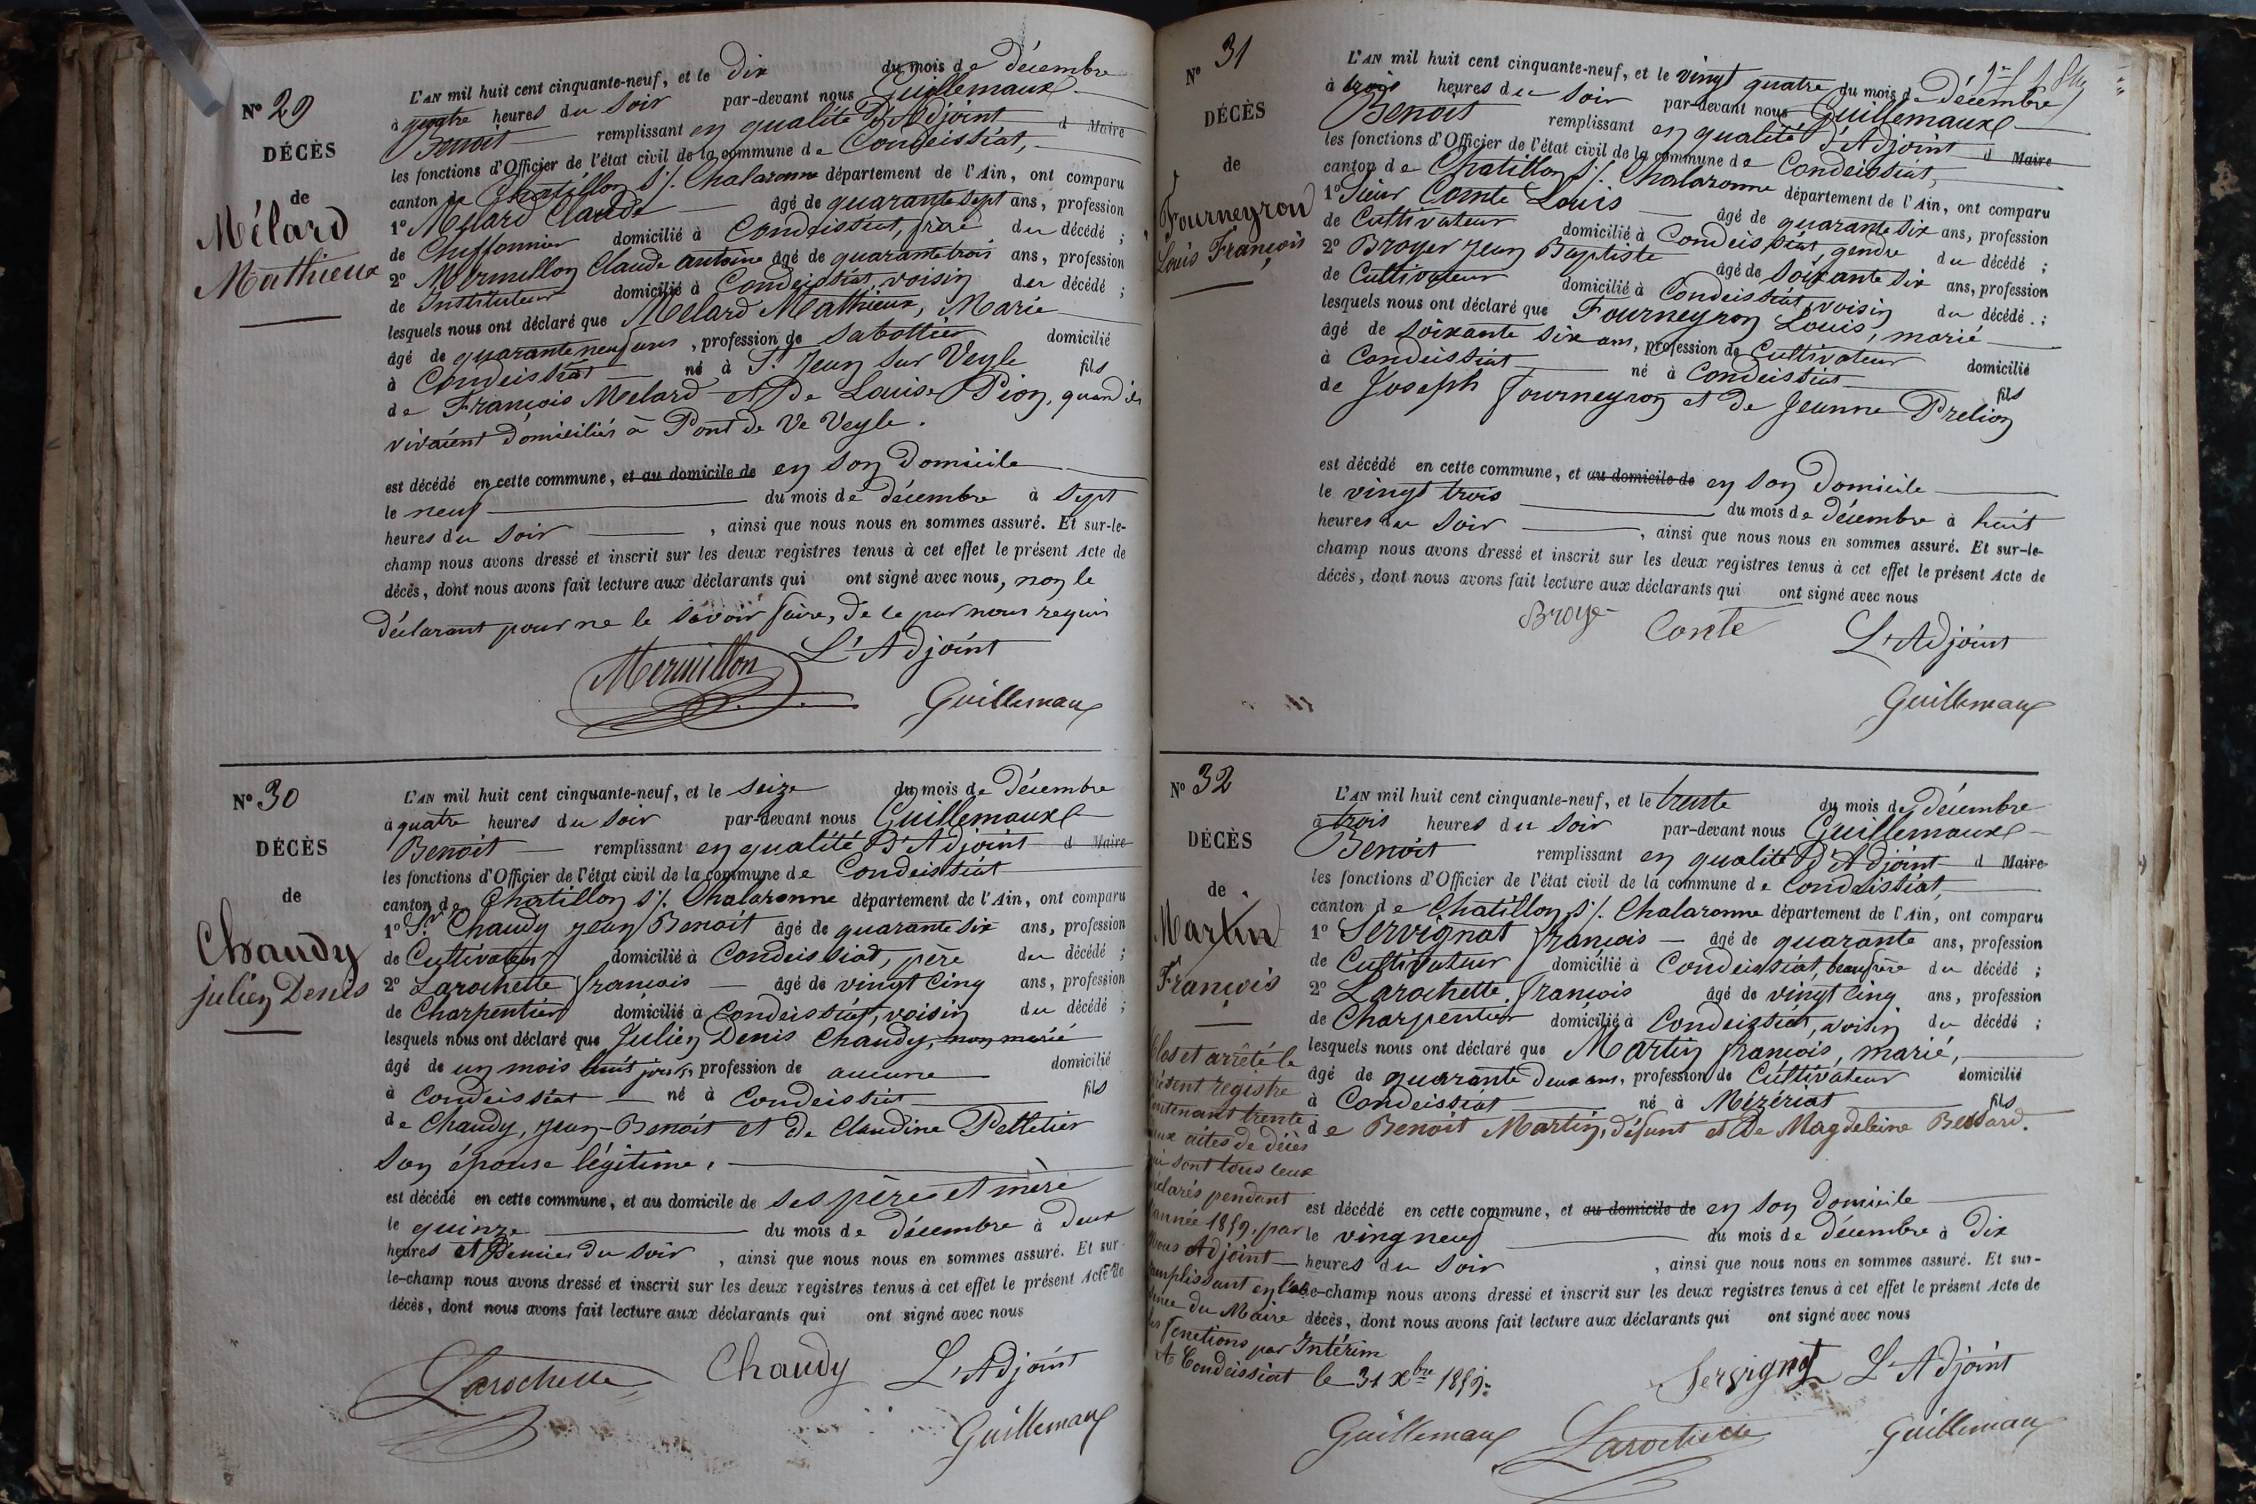 N° 29
DÉCÈS
de
Mélard
Mathieux
L'AN mil huit cent cinquante-neuf, et le dix du mois de décembre
à quatre heures du soir par-devant nous Guillemaux
Benoit remplissant en qualité d'Adjoint d Maire
les fonctions d'Officier de l'état civil de la commune de Condeissiat,
canton de Chatillon s/. Chalaronne département de l'Ain, ont comparu
1° Mélard Claude âgé de quarante sept ans, profession
de Chiffonnier domicilié à Condeissiat, frère du décédé ;
2° Mermillon Claude Antoine âgé de quarante trois ans, profession
de Instituteur domicilié à Condeissiat, voisin du décédé ;
lesquels nous ont déclaré que Mélard Mathieux, Marié
âgé de quarante neuf ans, profession de Sabottier domicilié
à Condeissiat né à St. Jean sur Veyle fils
de François Mélard et de Louise Pion, quand ils
vivaient domiciliés à Pont de Ve Veyle.
est décédé en cette commune, et au domicile de en son domicile
le neuf du mois de décembre à sept
heures du soir, ainsi que nous nous en sommes assuré. Et sur-le-
champ nous avons dressé et inscrit sur les deux registres tenus à cet effet le présent Acte de
décès, dont nous avons fait lecture aux déclarants qui ont signé avec nous, non le
déclarant pour ne le savoir faire, de ce par nous requis
Mermillon L'Adjoint
Guillemaux
N° 30
DÉCÈS
de
Chaudy
julien Denis
L'AN mil huit cent cinquante-neuf, et le seize du mois de décembre
à quatre heures du soir par-devant nous Guillemaux
Benoit remplissant en qualité d'Adjoint d Maire
les fonctions d'Officier de l'état civil de la commune de Condeissiat
canton de Chatillon s/. Chalaronne département de l'Ain, ont comparu
1° Sr. Chaudy jean Benoit âgé de quarante six ans, profession
de Cultivateur domicilié à Condeissiat, père du décédé ;
2° Larochette françois âgé de vingt cinq ans, profession
de Charpentier domicilié à Condeissiat, voisin du décédé ;
lesquels nous ont déclaré que Julien Denis Chaudy, non marié
âgé de un mois huit jours, profession de aucune domicilié
à Condeissiat né à Condeissiat fils
de Chaudy, jean-Benoit et de Claudine Pelletier
son épouse légitime,
est décédé en cette commune, et au domicile de ses père et mère
le quinze du mois de décembre à deux
heures et demie du soir, ainsi que nous nous en sommes assuré. Et sur-
le-champ nous avons dressé et inscrit sur les deux registres tenus à cet effet le présent Acte de
décès, dont nous avons fait lecture aux déclarants qui ont signé avec nous
Larochette Chaudy L'Adjoint
Guillemaux
N° 31
DÉCÈS
de
Fourneyron
Louis François
L'AN mil huit cent cinquante-neuf, et le vingt quatre du mois de décembre
à trois heures du soir par-devant nous Guillemaux
Benoit remplissant en qualité d'Adjoint d Maire
les fonctions d'Officier de l'état civil de la commune de Condeissiat,
canton de Chatillon s/. Chalaronne département de l'Ain, ont comparu
1° Sieur Comte Louis âgé de quarante six ans, profession
de Cultivateur domicilié à Condeissiat, gendre du décédé ;
2° Broyer Jean Baptiste âgé de soixante six ans, profession
de Cultivateur domicilié à Condeissiat, voisin du décédé ;
lesquels nous ont déclaré que Fourneyron Louis, marié
âgé de soixante six ans, profession de Cultivateur domicilié
à Condeissiat né à Condeissiat fils
de Joseph fourneyron et de Jeanne Prelion
est décédé en cette commune, et au domicile de en son domicile
le vingt trois du mois de décembre à huit
heures du soir, ainsi que nous nous en sommes assuré. Et sur-le-
champ nous avons dressé et inscrit sur les deux registres tenus à cet effet le présent Acte de
décès, dont nous avons fait lecture aux déclarants qui ont signé avec nous
Broye Conte L'Adjoint
Guillemaux
N° 32
DÉCÈS
de
Martin
François
L'AN mil huit cent cinquante-neuf, et le trente du mois de décembre
à trois heures du soir par-devant nous Guillemaux
Benoit remplissant en qualité d'Adjoint d Maire
les fonctions d'Officier de l'état civil de la commune de Condeissiat
canton de Chatillon s/. Chalaronne département de l'Ain, ont comparu
1° Servignat françois âgé de quarante ans, profession
de Cultivateur domicilié à Condeissiat, beaufrère du décédé ;
2° Larochette, françois âgé de vingt cinq ans, profession
de Charpentier domicilié à Condeissiat, voisin du décédé ;
lesquels nous ont déclaré que Martin françois, marié,
âgé de quarante deux ans, profession de Cultivateur domicilié
à Condeissiat né à Mézériat fils
de Benoit Martin, défunt et de Magdeleine
est décédé en cette commune, et au domicile de en son domicile
le ving neuf du mois de décembre à dix
heures du soir, ainsi que nous nous en sommes assuré. Et sur-
le-champ nous avons dressé et inscrit sur les deux registres tenus à cet effet le présent Acte de
décès, dont nous avons fait lecture aux déclarants qui ont signé avec nous
Servignat L'Adjoint
Larochette Guillemaux
Clos et arrêté le
présent registre
contenant trente
deux actes de décès
qui sont tous ceux
déclarés pendant
l'année 1859, par
nous Adjoint
remplissant en l'ab-
sence du Maire
les fonctions par Intérim
A Condeissiat le 31 Xbre 1859.
Guillemaux